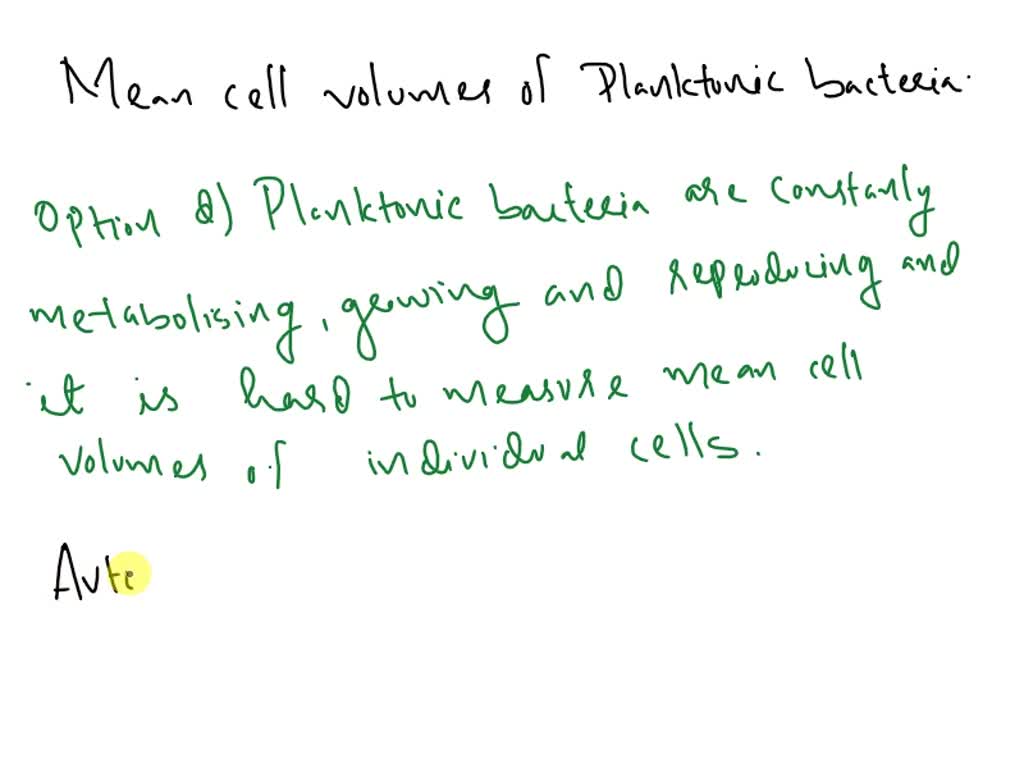 Mean cell volumes of Planktonic bacteria.
Option d) Planktonic bacteria are constanly
metabolising, growing and reproducing and
it is hard to measure mean cell
volumes of individual cells.
Aute